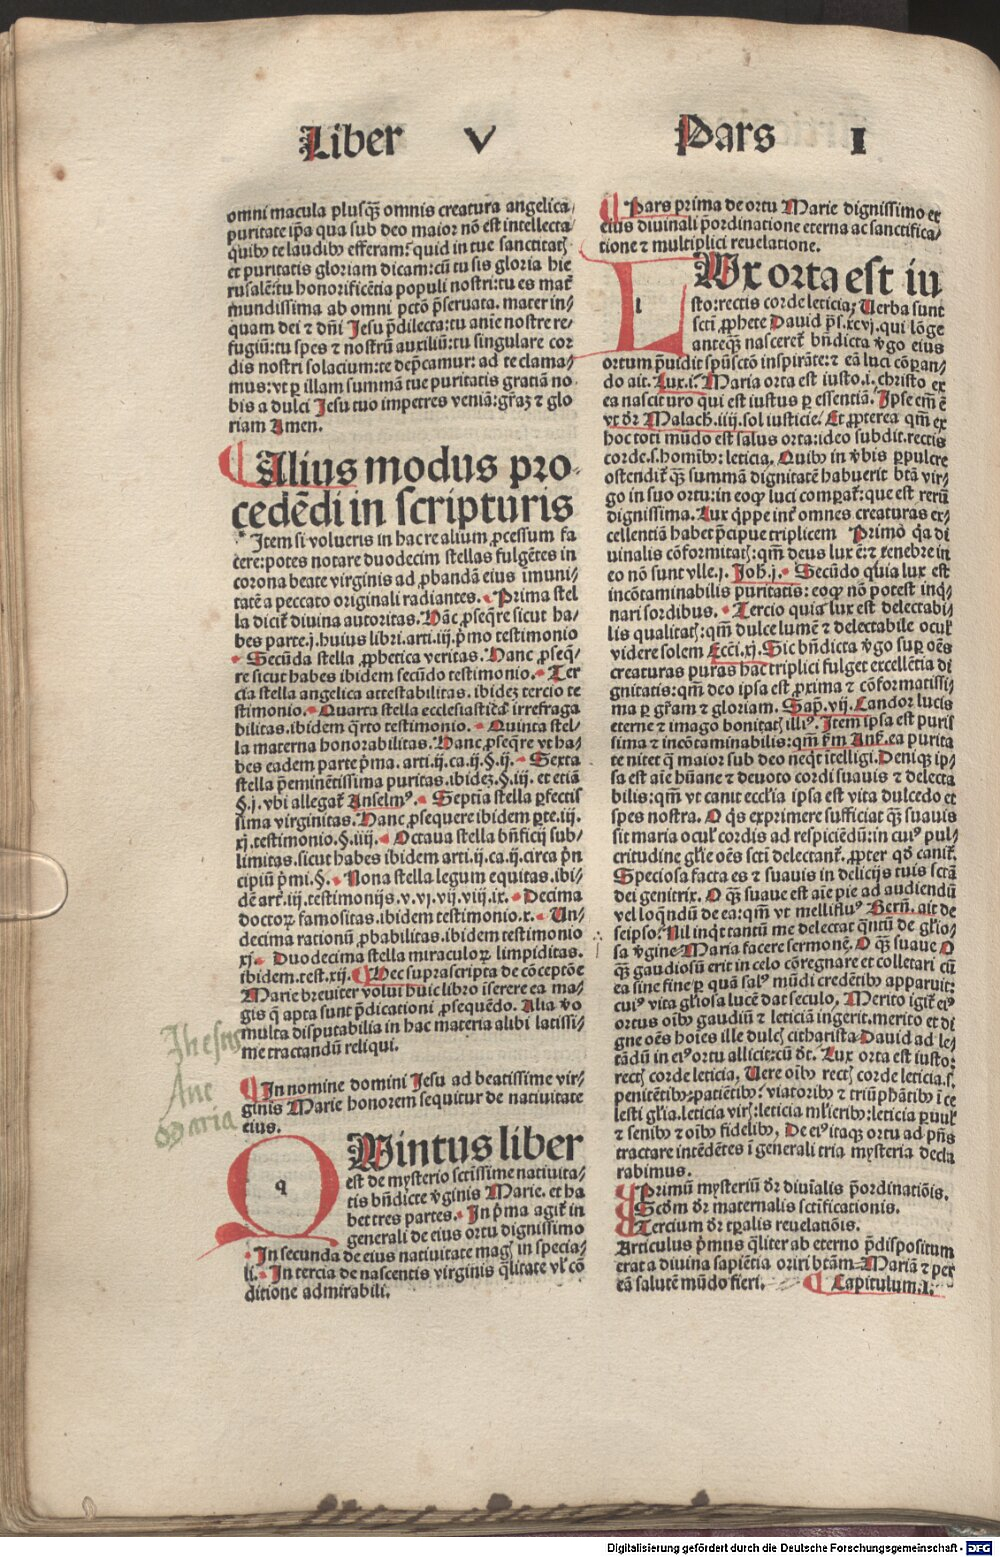 Liber V Pars I
omni macula plusq̃ omnis creatura angelica:
puritate ip̃a qua sub deo maior nõ est intellecta
quibꝰ te laudibꝰ efferam: quid in tue sanctitatꝭ
et puritatis gloriam dicam: cũ tu sis gloria hie
rusalẽ: tu honorificẽtia populi nostri: tu es mat̃
mundissima ab omni pctõ p̃seruata. mater in/
quam dei ⁊ dñi Jesu p̃dilecta: tu anie nostre re/
fugiũ: tu spes ⁊ nostrũ auxiliũ: tu singulare cor
dis nostri solacium: te dep̃camur: ad te clama/
mus: vt ꝑ illam summã tue puritatis gratiã no
bis a dulci Jesu tuo impetres veniã: gr̃az ⁊ glo
riam Amen.
¶ Alius modus pro-
cedẽdi in scripturis
Item si volueris in hac re alium ꝓcessum fa
cere: potes notare duodecim stellas fulgẽtes in
corona beate virginis ad ꝓbandã eius imuni/
tatẽ a peccato originali radiantes. Prima stel
la dicit̃ diuina autoritas. Hãc ꝓseq̃re sicut ha/
bes parte.j. huius libri. arti. iij p̃mo testimonio
Secũda stella ꝓphetica veritas. Hanc ꝓseq̃/
re sicut habes ibidem secũdo testimonio. Ter
cia stella angelica attestabilitas. ibidez tercio te
stimonio. Quarta stella ecclesiastica irrefraga
bilitas. ibidem q̃rto testimonio. Quinta stel/
la materna honorabilitas. Hanc ꝓseq̃re vt ha/
bes eadem parte p̃ma. arti.ij. ca.ij. §.ij. Sexta
stella p̃eminẽtissima puritas. ibidez. §.iij. et etiã
§.j. vbi allegat̃ Anselmꝰ. Septia stella ꝑfectis
sima virginitas. Hanc ꝓsequere ibidem ꝑte.iij.
xj. testimonio. §. iiij. Octaua stella bñficij sub/
limitas. sicut habes ibidem arti.ij. ca.ij. circa p̃n
cipiũ p̃mi. §. Nona stella legum equitas. ibi/
dẽ art̃.iij. testimonijs. v. vj. vij. viij. ix. Decima
doctoꝝ famositas. ibidem testimonio. x. Un/
decima rationũ ꝓbabilitas. ibidem testimonio
xj. Duodecima stella miraculoꝝ limpiditas.
ibidem. test. xij. ¶ Hec suprascripta de cõceptõe
Marie breuiter volui huic libro iserere ea ma/
gis q̃ apta sunt p̃dicationi ꝓsequẽdo. Alia ṽo
multa disputabilia in hac materia alibi latissi/
me tractandũ reliqui.
Jhesus
Aue
Maria
¶ In nomine domini Jesu ad beatissime vir/
ginis Marie honorem sequitur de natiuitate
eius.
q
QUintus liber
est de mysterio sctissime natiuita/
tis bñdicte ṽginis Marie. et ha
bet tres partes. In p̃ma agit̃ in
generali de eius ortu dignissimo
In secunda de eius natiuitate magꝭ in specia/
li. In tercia de nascentis virginis q̃litate vl̃ cõ
ditione admirabili.
¶ Pars prima de ortu Marie dignissimo et
eius diuinali p̃ordinatione eterna ac sanctifica/
tione ⁊ multiplici reuelatione.
l
LUx orta est iu
sto: rectis corde leticia; Uerba sunt
sctĩ ꝓphete Dauid p̃s. xcvj. qui lõge
anteq̃ nasceret̃ bñdicta ṽgo eius
ortum p̃uidit spũsctõ inspirãte: ⁊ eã luci cõꝑan/
do ait. Lux .i. Maria orta est iusto .i. christo ex
ea nascituro qui est iustus ꝑ essentiã. Ipse em̃ ẽ
vt dr̃ Malach. iiij. sol iusticie. Et ꝓpterea qm̃ ex
hoc toti mũdo est salus orta: ideo subdit. rectis
corde .s. hominibꝰ: leticia. Quibꝰ in ṽbis ꝑpulcre
ostendit̃ q̃ summã dignitatẽ habuerit btã vir/
go in suo ortu: in eoq̃ luci comꝑat̃: que est rerũ
dignissima. Lux q̃ppe int̃ omnes creaturas ex/
cellentiã habet p̃cipue triplicem Primo q̃a di
uinalis cõformitatꝭ: qm̃ deus lux ẽ: ⁊ tenebre in
eo nõ sunt vlle .j. Joh. j. Secũdo quia lux est
incõtaminabilis puritatis: eoq̃ nõ potest inq̃/
nari sordibus. Tercio quia lux est delectabi/
lis qualitatꝭ: qm̃ dulce lumẽ ⁊ delectabile oculꝭ
videre solem Ecc̃i. xj. Sic bñdicta ṽgo suꝑ oẽs
creaturas puras hac triplici fulget excellẽtia di
gnitatis: qm̃ deo ipsa est ꝓxima ⁊ cõformatissi/
ma ꝑ gr̃am ⁊ gloriam. Sap̃. vij. Candor lucis
eterne ⁊ imago bonitatꝭ illiꝰ. Item ipsa est puris
sima ⁊ incõtaminabilis: qm̃ ẽm Ans̃. ea purita
te nitet q̃ maior sub deo neq̃t ĩtelligi. Deniq̃ ip/
sa est aĩe hũane ⁊ deuoto cordi suauis ⁊ delecta
bilis: qm̃ vt canit eccl̃ia ipsa est vita dulcedo et
spes nostra. O q̃s exprimere sufficiat q̃ suauis
sit maria oculꝭ cordis ad respiciẽdũ: in cuiꝰ pul/
critudine gl̃ie oẽs sctĩ delectant̃. ꝓpter qd̃ canit̃.
Speciosa facta es ⁊ suauis in delicijs tuis sctã
dei genitrix. O q̃ suaue est aĩe pie ad audiendũ
vel loq̃ndũ de ea: qm̃ vt mellifluꝰ Bern̄. ait de
seipso. Nil inq̃t tantũ me delectat q̃ntũ de gl̃io/
sa ṽgine Maria facere sermonẽ. O q̃ suaue O
q̃ gaudiosũ erit in celo cõregnare et colletari cũ
ea sine fine ꝑ quã salꝰ mũdi credẽtibꝰ apparuit:
cuiꝰ vita gl̃iosa lucẽ dat seculo. Merito igit̃ eiꝰ
ortus oĩbꝰ gaudiũ ⁊ leticiã ingerit. merito et di
gne oẽs hoĩes ille dulcꝭ citharista Dauid ad le/
tãdũ in eiꝰ ortu allicit: cũ dt̃. Lux orta est iusto:
rectꝭ corde leticia. Uere oĩbꝰ rectꝭ corde leticia .s.
penitẽtibꝰ: patiẽtibꝰ: viatoribꝰ ⁊ triũphãtibꝰ ĩ ce
lesti gl̃ia. leticia virꝭ: leticia ml̃ieribꝰ: leticia ꝑuulꝭ
⁊ senibꝰ ⁊ oĩbꝰ fidelibꝰ. De eiꝰ itaq̃ ortu ad p̃ñs
tractare intẽdẽtes ĩ generali tria mysteria decla
rabimus.
¶ Primũ mysteriũ dr̃ diuĩalis p̃ordinatiõis.
¶ Scd̃m dr̃ maternalis sctĩficationis.
¶ Tercium dr̃ tꝑalis reuelatiõis.
Articulus p̃mus q̃liter ab eterno p̃dispositum
erat a diuina sapiẽtia oriri btãm Mariã ⁊ per
eã salutẽ mũdo fieri. ¶ Capitulum .I.
Digitalisierung gefördert durch die Deutsche Forschungsgemeinschaft - DFG